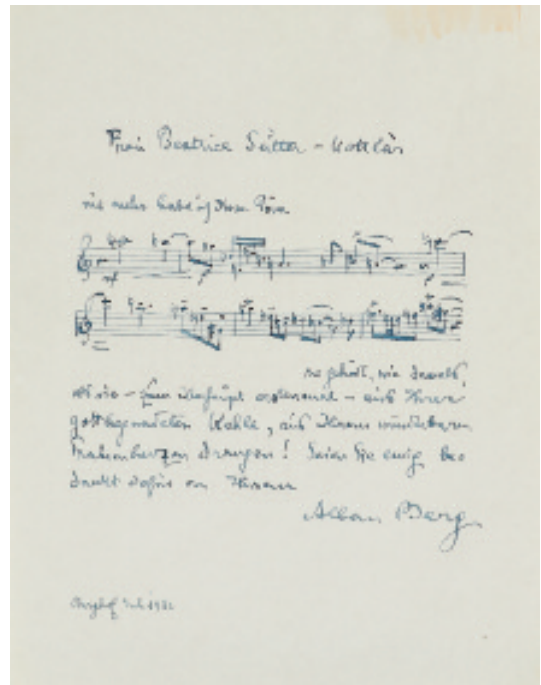 Frau Beatrice Sutter-Kottlar
nie mehr habe ich diese Töne
so gehört, wie damals,
als sie – zum überhaupt erstenmal – aus Ihrer
gottbegnadeten Kehle, aus Ihrem wunderbaren
Frauenherzen drangen! Seien Sie ewig be
dankt dafür von Ihrem
Alban Berg
Juli 1932